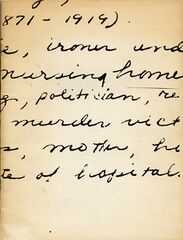 871-1919).
e, ironer and
nursing home
g, politician, re
murder vict
s, mother, hi
te of hospital.